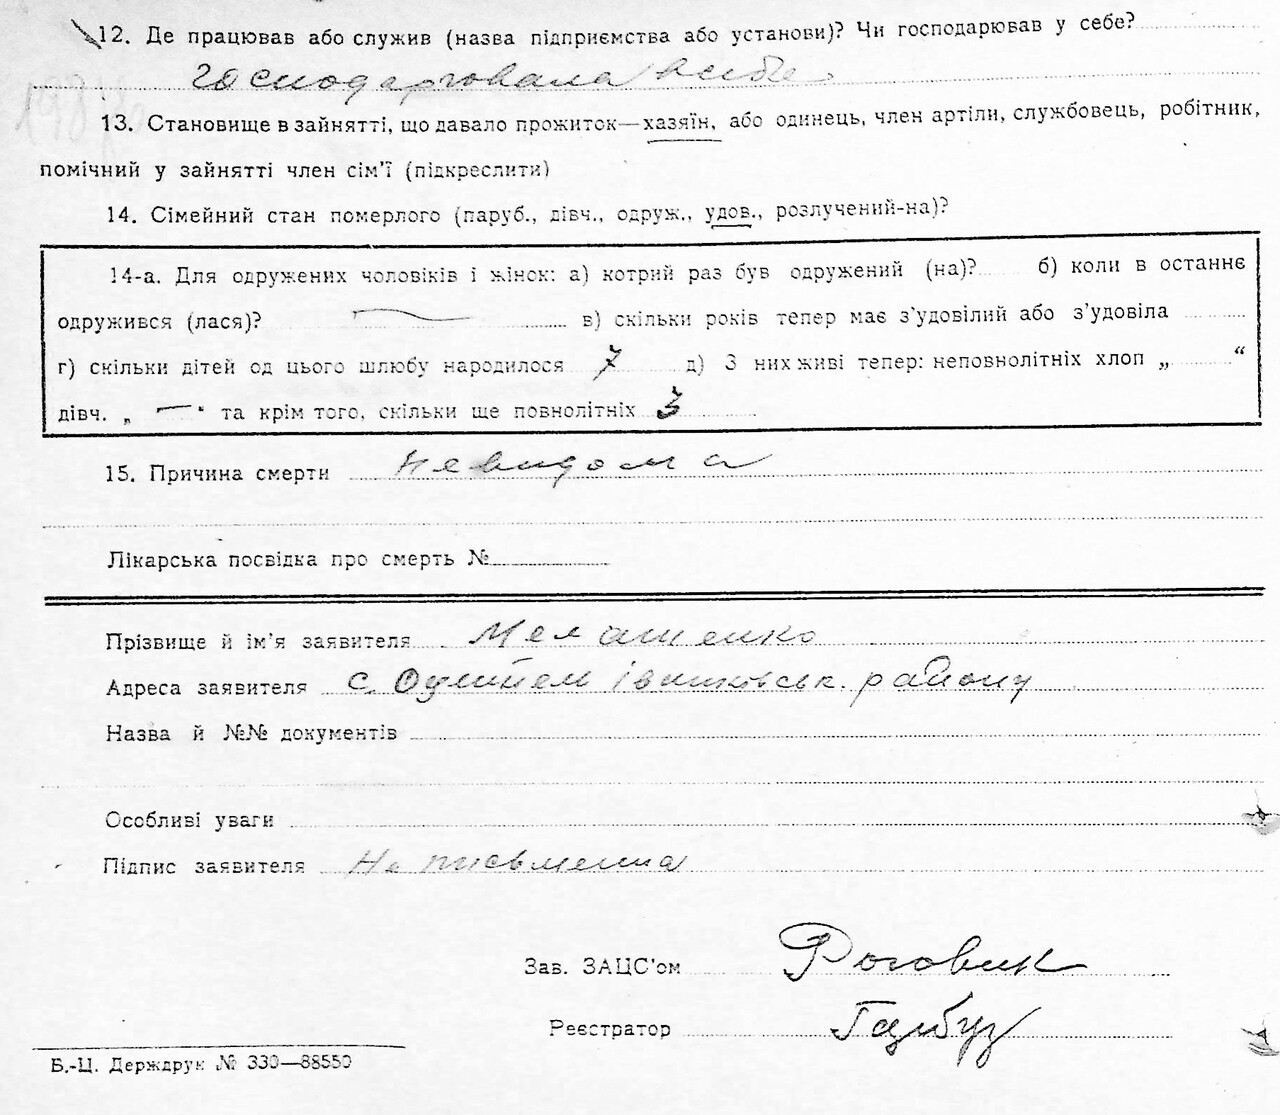 12. Де працював або служив (назва підприємства або установи)? Чи господарював у себе?
господарювала в себе
13. Становище в зайнятті, що давало прожиток—хазяїн, або одинець, член артіли, службовець, робітник,
помічний у зайнятті член сім'ї (підкреслити)
14. Сімейний стан померлого (паруб., дівч., одруж., удов., розлучений-на)?
14-а. Для одружених чоловіків і жінок: а) котрий раз був одружений (на)? б) коли в останнє
одружився (лася)? — в) скільки років тепер має з'удовілий або з'удовіла
г) скільки дітей од цього шлюбу народилося 7 д) З них живі тепер: неповнолітніх хлоп „ “
дівч. „ — “ та крім того, скільки ще повнолітніх 3
15. Причина смерти невидома
Лікарська посвідка про смерть №
Прізвище й ім'я заявителя Мелашенко
Адреса заявителя с. району
Назва й №№ документів
Особливі уваги
Підпис заявителя Не письменна
Зав. ЗАЦС'ом Роговик
Реєстратор Гарбуз
Б.-Ц. Держдрук № 330—88550